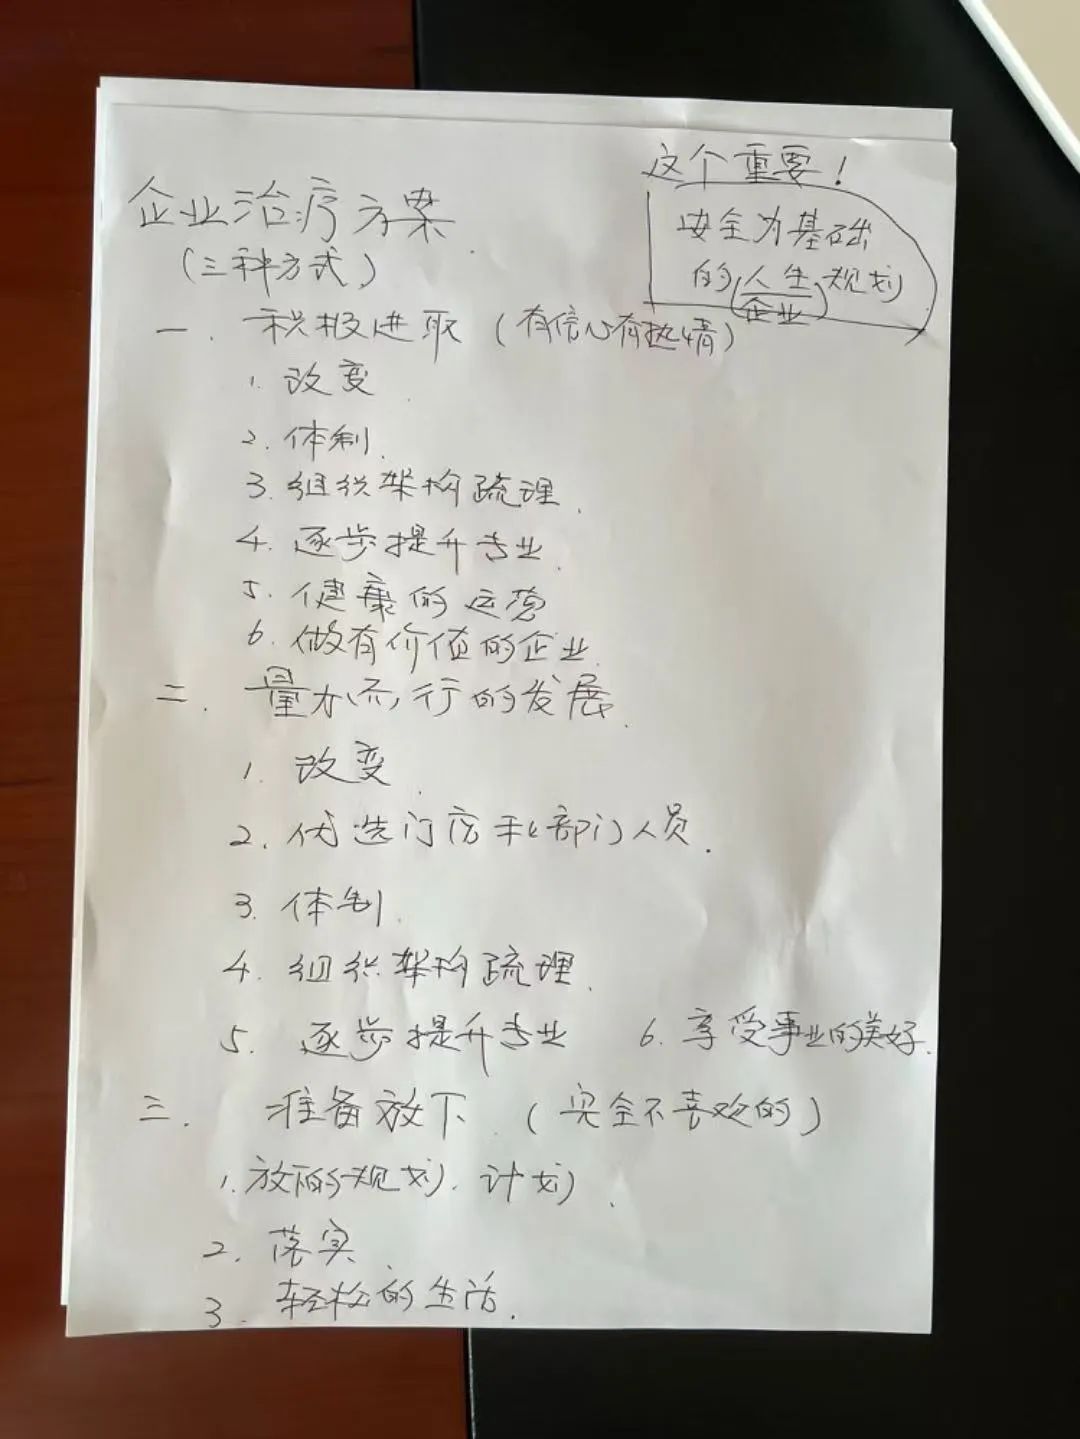 这个重要！
安全为基础
的(人生)规划
企业
企业治疗方案
(三种方式)
一. 积极进取 (有信心有热情)
1. 改变
2. 体制.
3. 组织架构疏理.
4. 逐步提升专业.
5. 健康的运营
6. 做有价值的企业.
二. 量力而行的发展.
1. 改变.
2. 优选门店和部门人员.
3. 体制.
4. 组织架构疏理.
5. 逐步提升专业 6. 享受事业的美好.
三. 准备放下. (完全不喜欢的)
1. 放下的规划. 计划.
2. 落实.
3. 轻松的生活.